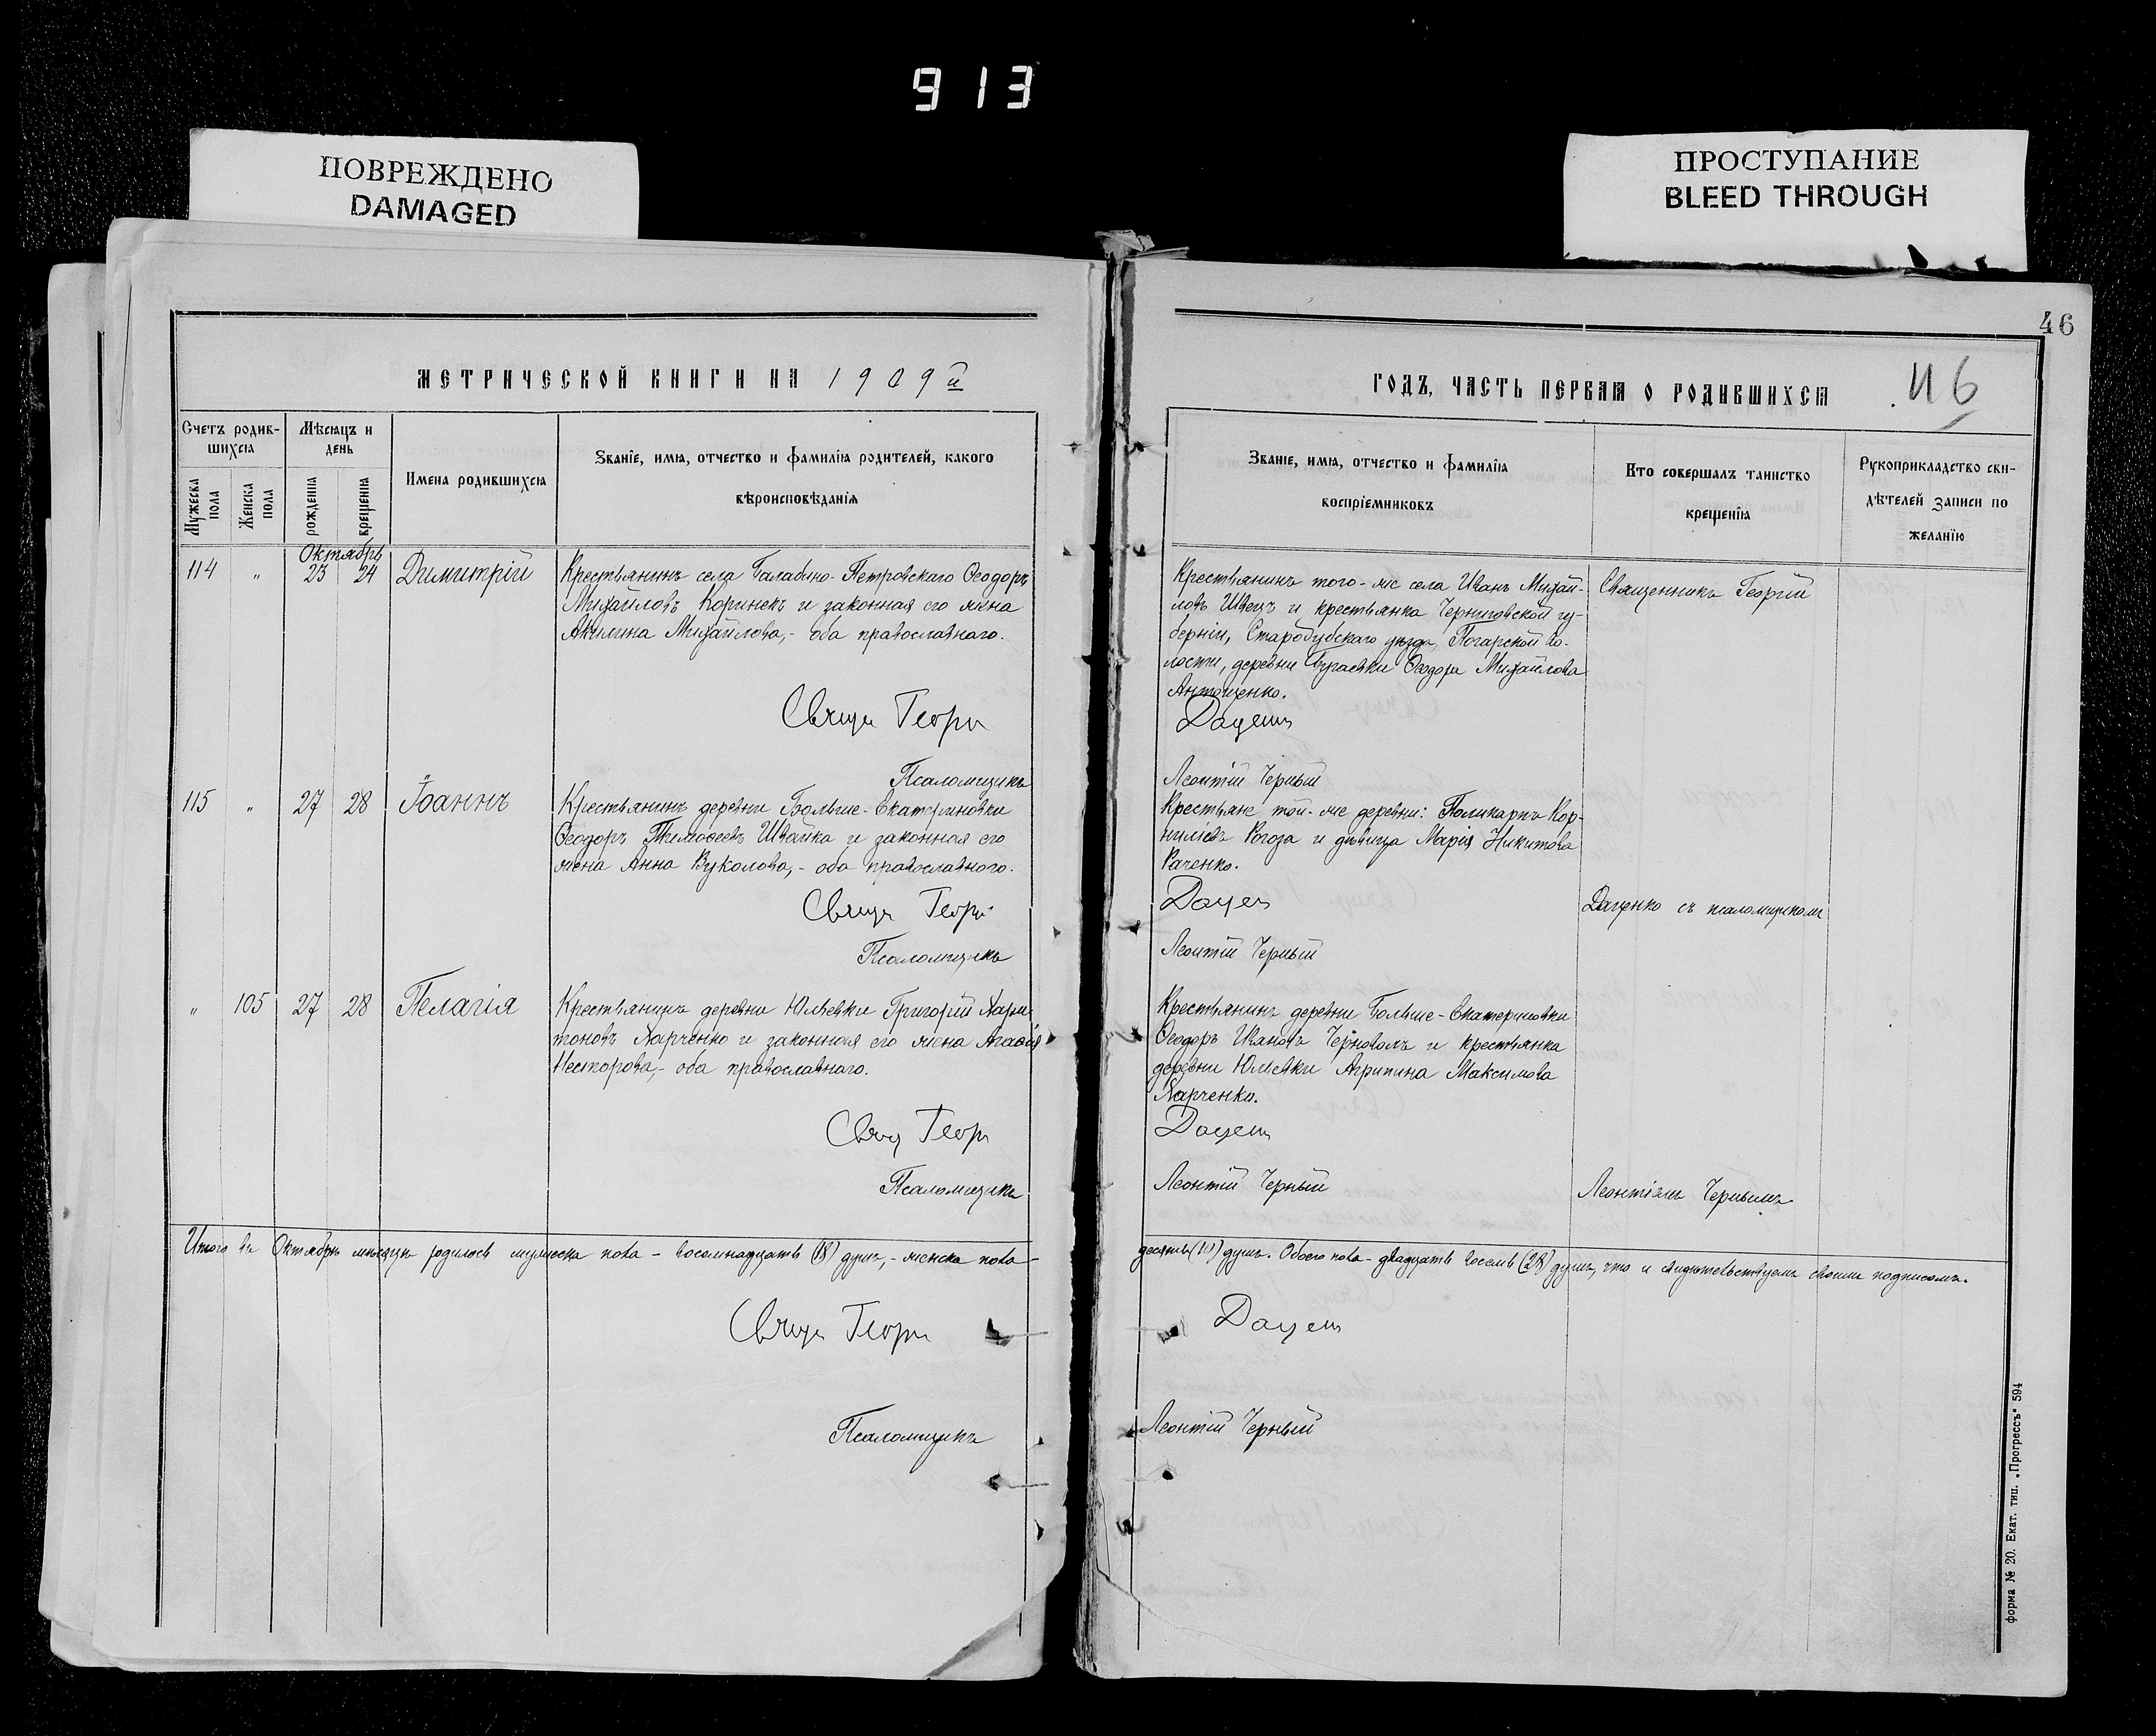 913
ПОВРЕЖДЕНО
DAMAGED
ПРОСТУПАНИЕ
BLEED THROUGH
46
МЕТРИЧЕСКОЙ КНИГИ НА 1909й
Счетъ родив-
шихся
Мѣсяцъ и
день
Мужеска
пола
Женска
пола
рожденія
крещенія
Имена родившихся
Званіе, имя, отчество и фамилія родителей, какого
вѣроисповѣданія
Октябрь
114 „ 23 24 Димитрій
Крестьянинъ села Балабино-Петровскаго Ѳеодоръ
Михайловъ Коринекъ и законная его жена
Акилина Михайлова,- оба православнаго.
Свящ Георг
Псаломщикъ
115 „ 27 28 Іоаннъ
Крестьянинъ деревни Больше-Екатериновки
Ѳеодоръ Тимоѳеевъ Швайка и законная его
жена Анна Вуколова,- оба православнаго.
Свящ Георг
Псаломщикъ
„ 105 27 28 Пелагія
Крестьянинъ деревни Юльевки Григорій Хари-
тоновъ Харченко и законная его жена Агаѳія
Несторова,- оба православнаго.
Свящ Георг
Псаломщикъ
Итого въ Октябрѣ мѣсяцѣ родилось мужеска пола - восемнадцать (18) душъ,- женска пола -
Свящ Георг
Псаломщикъ
ГОДЪ, ЧАСТЬ ПЕРВАЯ О РОДИВШИХСЯ
46
Званіе, имя, отчество и фамилія
воспріемниковъ
Кто совершалъ таинство
крещенія
Рукоприкладство сви-
дѣтелей записи по
желанію
Крестьянинъ того-же села Иванъ Михай-
ловъ Швецъ и крестьянка Черниговской гу-
берніи, Стародубскаго уѣзда, Погарской во-
лости, деревни Бугаевки Ѳеодора Михайлова
Антощенко.
Даценк
Леонтій Черный
Священникъ Георгій
Крестьяне той-же деревни: Поликарпъ Кор-
ниліевъ Рогоза и дѣвица Марія Никитова
Раченко.
Дацен
Даценко съ псаломщикомъ
Леонтій Черный
Крестьянинъ деревни Больше-Екатериновки
Ѳеодоръ Ивановъ Черноволъ и крестьянка
деревни Юльевки Агрипина Максимова
Харченко.
Даценк
Леонтій Черный
Леонтіемъ Чернымъ.
десять (10) душъ. Обоего пола - двадцать восемь (28) душъ, что и свидѣтельствуемъ своимъ подписомъ.
Даценк
Леонтій Черный
форма № 20. Екат. тип. „Прогрессъ“ 594